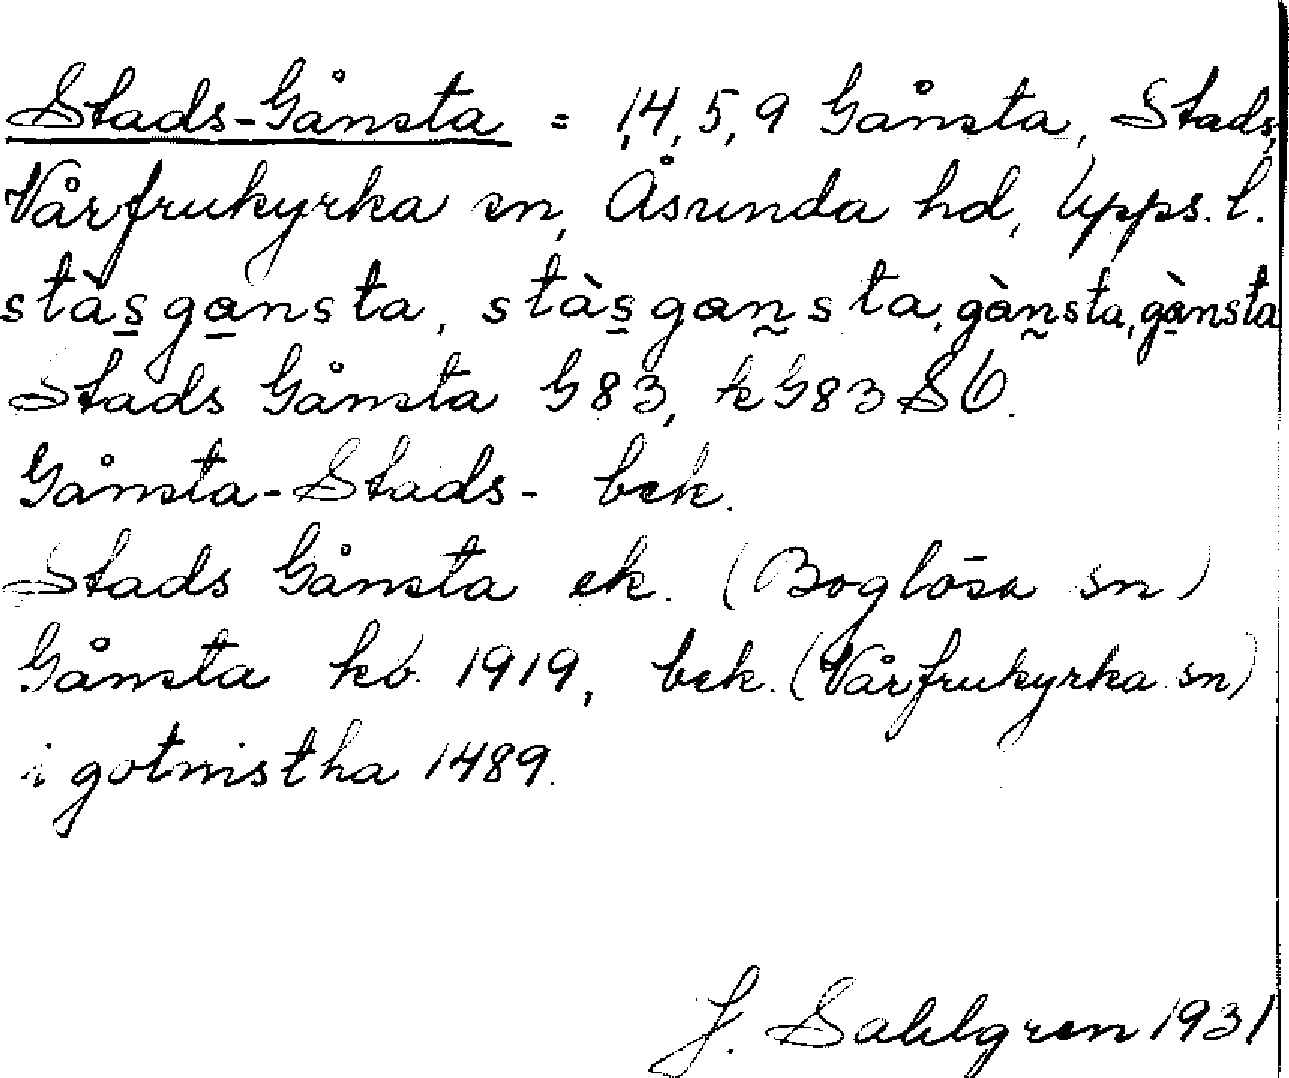 Stads-Gånsta = 1,4,5,9 Gånsta, Stads,
Vårfrukyrka sn, Åsunda hd, Upps. l.
stàsgansta, stàsgansta, gànsta, gànsta
Stads Gånsta G83, kG83 SÖ.
Gånsta-Stads- bek.
Stads Gånsta ek. (Boglösa sn)
Gånsta kb. 1919, bek. (Vårfrukyrka sn)
i gotnistha 1489.
J. Sahlgren 1931